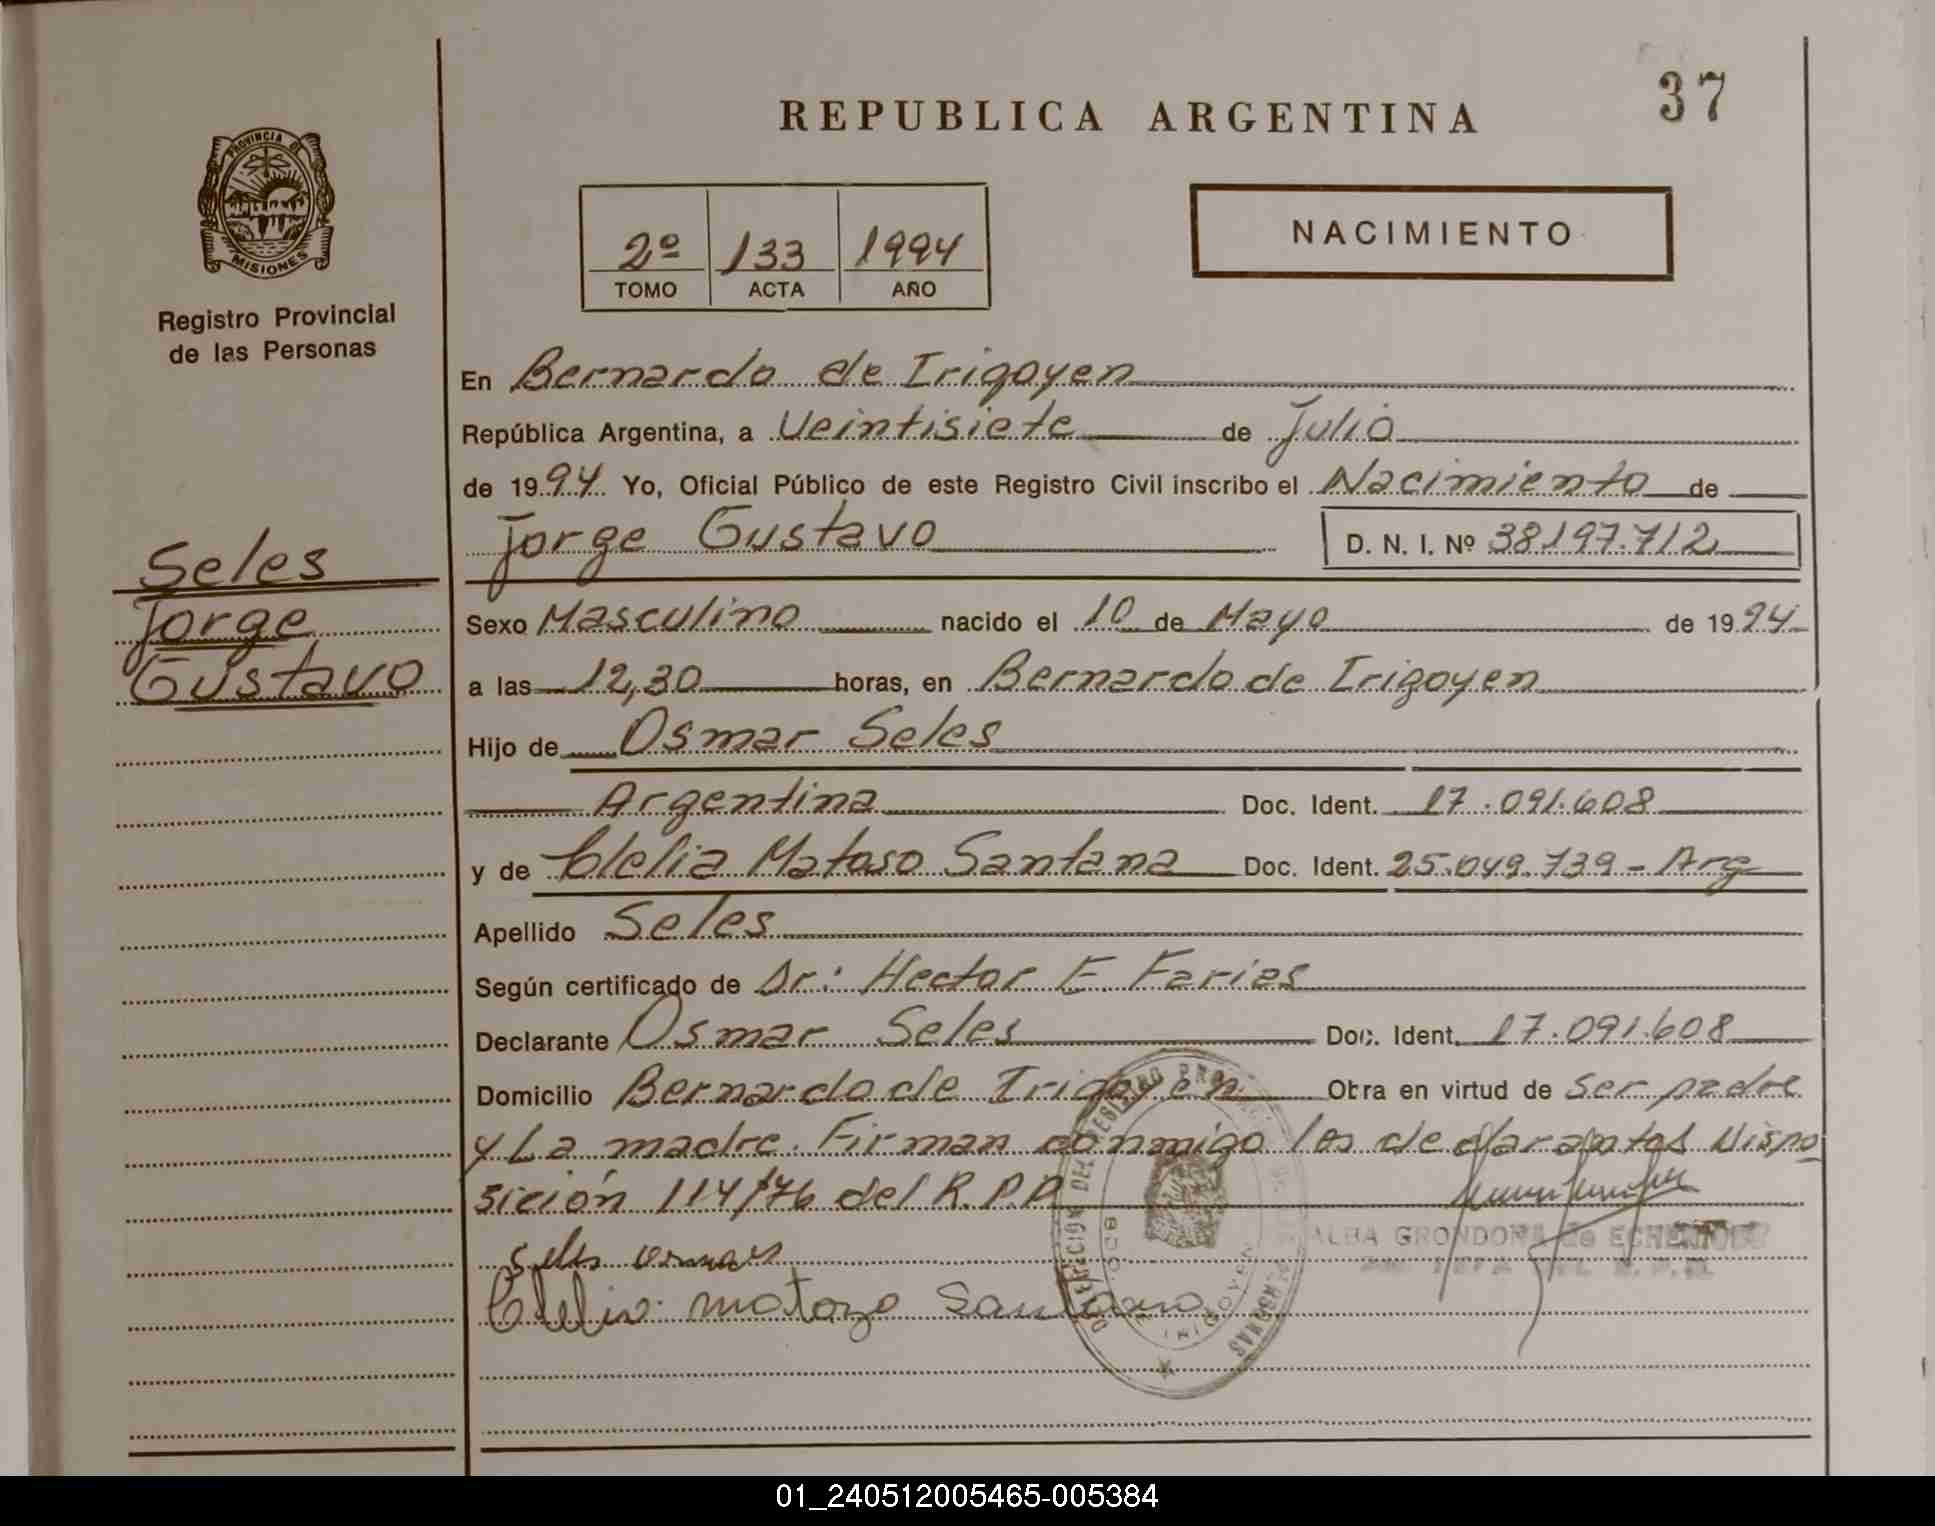 37
REPUBLICA ARGENTINA
PROVINCIA DE
MISIONES
Registro Provincial
de las Personas
2º 133 1994
TOMO ACTA AÑO
NACIMIENTO
En Bernardo de Irigoyen
República Argentina, a Veintisiete de Julio
de 1994 Yo, Oficial Público de este Registro Civil inscribo el Nacimiento de
Jorge Gustavo D. N. I. Nº 38197.712
Seles
Jorge
Gustavo
Sexo Masculino nacido el 10 de Mayo de 1994
a las 12,30 horas, en Bernardo de Irigoyen
Hijo de Osmar Seles
Argentina Doc. Ident. 17.091.608
y de Clelia Matoso Santana Doc. Ident. 25.049.739 - Arg
Apellido Seles
Según certificado de Dr: Hector E. Farias
Declarante Osmar Seles Doc. Ident. 17.091.608
Domicilio Bernardo de Irigoyen Obra en virtud de ser padre
y La madre. Firman conmigo los declarantes Dispo
sición 114/76 del R.P.P
ALBA GRONDONA de
Seles osmar
Clelia matozo Santana
01_240512005465-005384